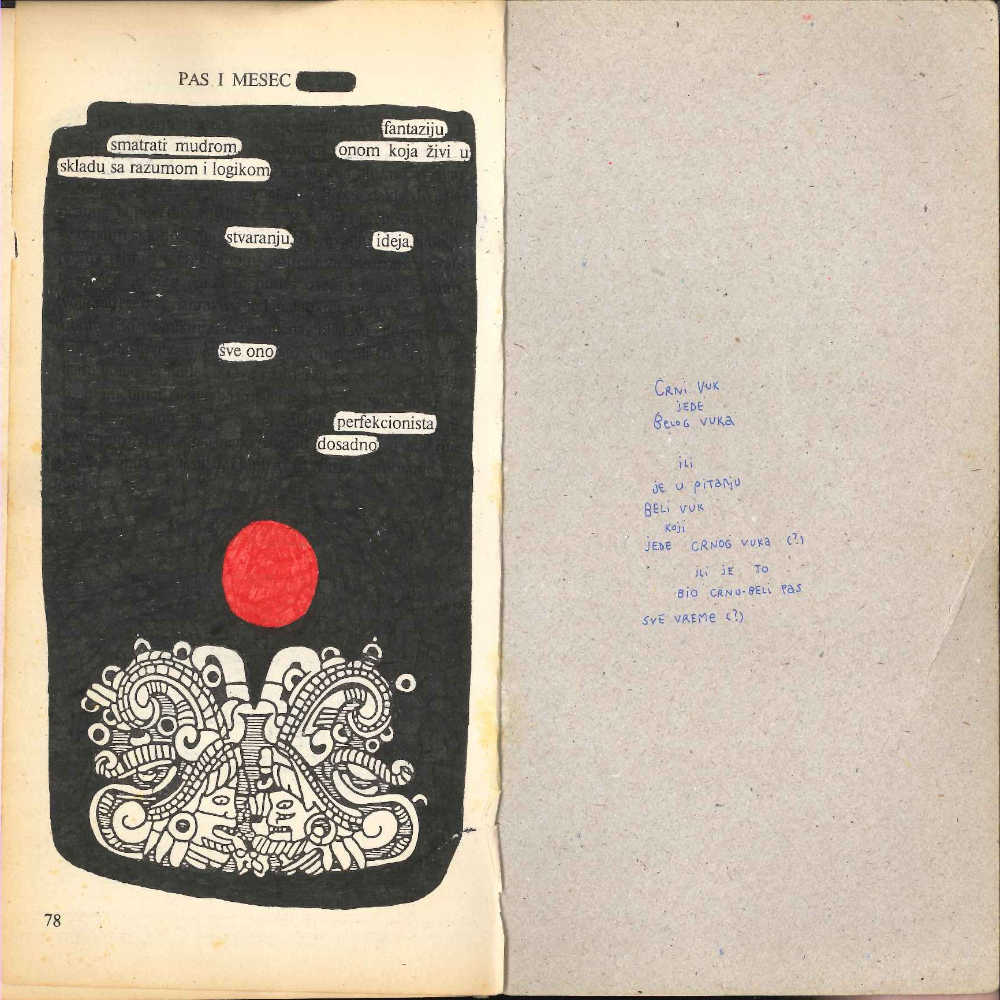 PAS I MESEC
fantaziju,
smatrati mudrom
onom koja živi u
skladu sa razumom i logikom
stvaranju, ideja,
sve ono
perfekcionista
dosadno
78
CRNI VUK
JEDE
BELOG VUKA
ILI
JE U PITANJU
BELI VUK
KOJI
JEDE CRNOG VUKA (?)
ILI JE TO
BIO CRNO-BELI PAS
SVE VREME (?)